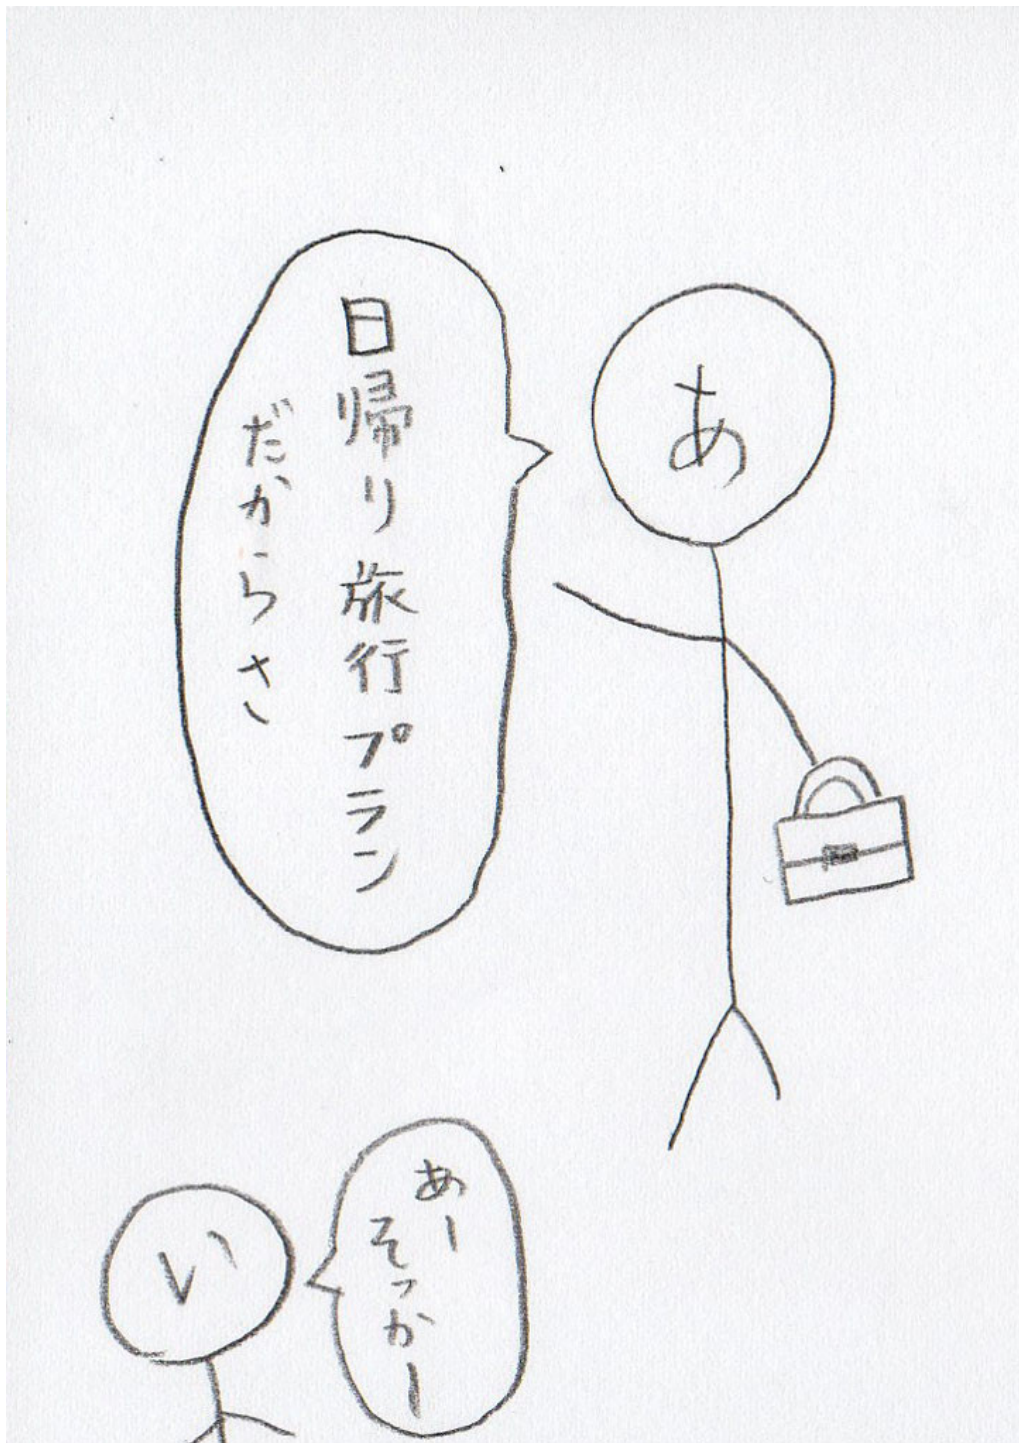 あ
日帰り旅行プラン
だからさ
あー
そっかー
い